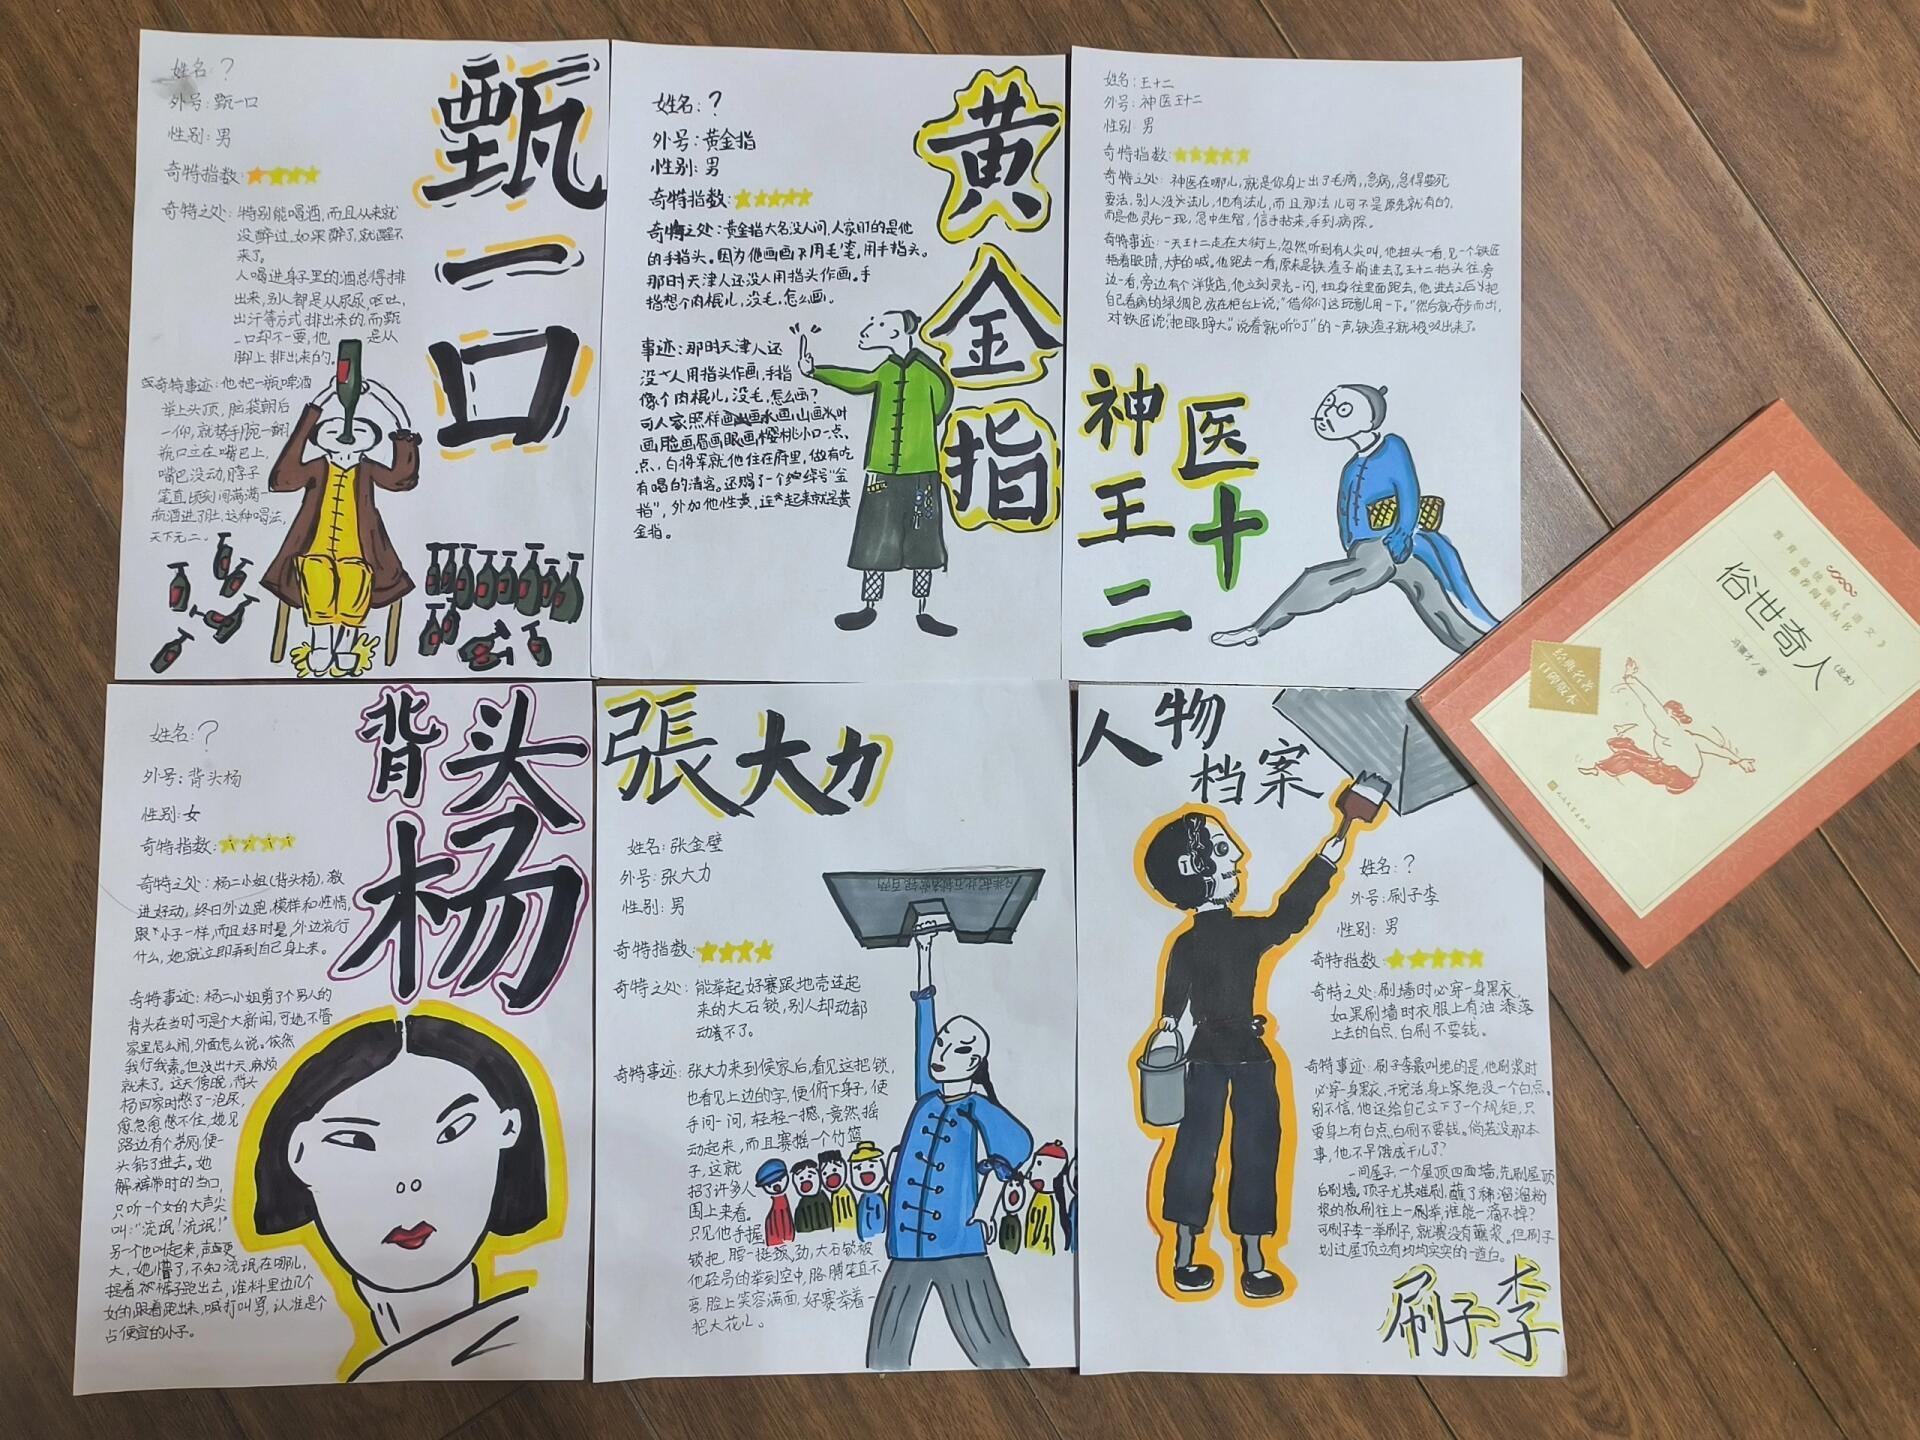 姓名:?
外号:甄一口
性别:男
奇特指数:
奇特之处:特别能喝酒,而且从来就
没醉过.如果醉了,就醒不
来了。
人喝进身子里的酒总得排
出来,别人都是从尿尿.呕吐,
出汗等方式排出来的.而甄
一口却不一要,他 是从
脚上排出来的.
奇特事迹:他把一瓶啤酒
举上头顶,脑袋朝后
一仰,就势手腕一翻
瓶口立在嘴巴上,
嘴巴没动,脖子
笔直,顷刻间满满一
瓶酒进了肚,这种喝法,
天下无二。
甄一口
姓名:?
外号:黄金指
性别:男
奇特指数:
奇特之处:黄金指大名没人问,人家盯的是他
的手指头。因为他画画不用毛笔,用手指头。
那时天津人还没人用指头作画。手
指想个肉棍儿,没毛,怎么画。
事迹:那时天津人还
没人用指头作画,手指
像个肉棍儿,没毛,怎么画?
可人家照样画山画水画
画脸画眉画眼画樱桃小口一点、
点、白将军就他住在府里,做有吃
有喝的清客。还赐了一个绰号"金
指",外加他性黄,连起来就是黄
金指。
黄金指
姓名:王十二
外号:神医王十二
性别:男
奇特指数:
奇特之处:神医在哪儿,就是你身上出了毛病,急病,急得要死
要活,别人没法儿,他有法儿,而且那法儿可不是原先就有的,
而是他灵光一现,急中生智,信手拈来,手到病除.
奇特事迹:一天王十二走在大街上,忽然听到有人尖叫,他扭头一看,见一个铁匠
捂着眼睛,大声的喊。他跑去一看,原来是铁渣子崩进去了.王十二抬头往旁
边一看,旁边有个洋货店,他立刻灵光一闪,扭身往里面跑去,他进去之后把
自己看病的绿绸包放在柜台上说:"借你们这玩意儿用一下。"然后就奇步而出,
对铁匠说:"把眼睁大。"说着就听"叮"的一声,铁渣子就被吸出来了。
神医
王十
二
姓名:?
外号:背头杨
性别:女
奇特指数:
奇特之处:杨二小姐(背头杨),激
进好动,终日外边跑,模样和性情,
跟小子一样,而且好时髦,外边流行
什么,她就立即弄到自己身上来。
奇特事迹:杨二小姐剪了个男人的
背头在当时可是个大新闻,可她不管
家里怎么闹,外面怎么说。依然
我行我素.但没出十天,麻烦
就来了。这天傍晚,背头
杨回家时憋了一泡尿,
愈急愈憋不住,她见
路边有个茅厕,便一
头钻了进去。她
解裤带时的当口,
只听一个女的大声尖
叫:"流氓!流氓!"
另一个也叫起来,声更
大,她懵了,不知流氓在哪儿,
提着裤子跑出去,谁料里边几个
女的跟着跑出来,喊打叫骂,认准是个
占便宜的小子。
背头
杨
張大力
姓名:张金璧
外号:张大力
性别:男
奇特指数:
奇特之处:能举起好赛跟地壳连起
来的大石锁,别人却动都
动弹不了。
奇特事迹:张大力来到侯家后,看见这把锁,
也看见上边的字,便俯下身子,使
手问一问,轻轻一撼,竟然摇
动起来,而且赛摇一个竹篮
子,这就
招了许多人
围上来看。
只见他手握
锁把,腰一挺劲,大石锁被
他轻易的举到空中,胳膊笔直不
弯,脸上笑容满面,好赛举着一
把大花儿。
人物
档案
姓名:?
外号:刷子李
性别:男
奇特指数:
奇特之处:刷墙时必穿一身黑衣,
如果刷墙时衣服上有油漆落
上去的白点,白刷不要钱。
奇特事迹:刷子李最叫绝的是,他刷浆时
必穿一身黑衣,干完活,身上家绝没一个白点。
别不信,他还给自己立下了一个规矩,只
要身上有白点,白刷不要钱。倘若没那本
事,他不早饿成干儿了?
一间屋子,一个屋顶四面墙,先刷屋顶
后刷墙。顶子尤其难刷,蘸了稀溜溜粉
浆的板刷往上一举,谁能一滴不掉?
可刷子李一举刷子,就赛没有蘸浆。但刷子
划过屋顶立有均均实实的一道白。
刷子李
教育部统编《语文》
推荐阅读丛书
俗世奇人
(足本)
冯骥才/著
经典名著
口碑版本
人民文学出版社